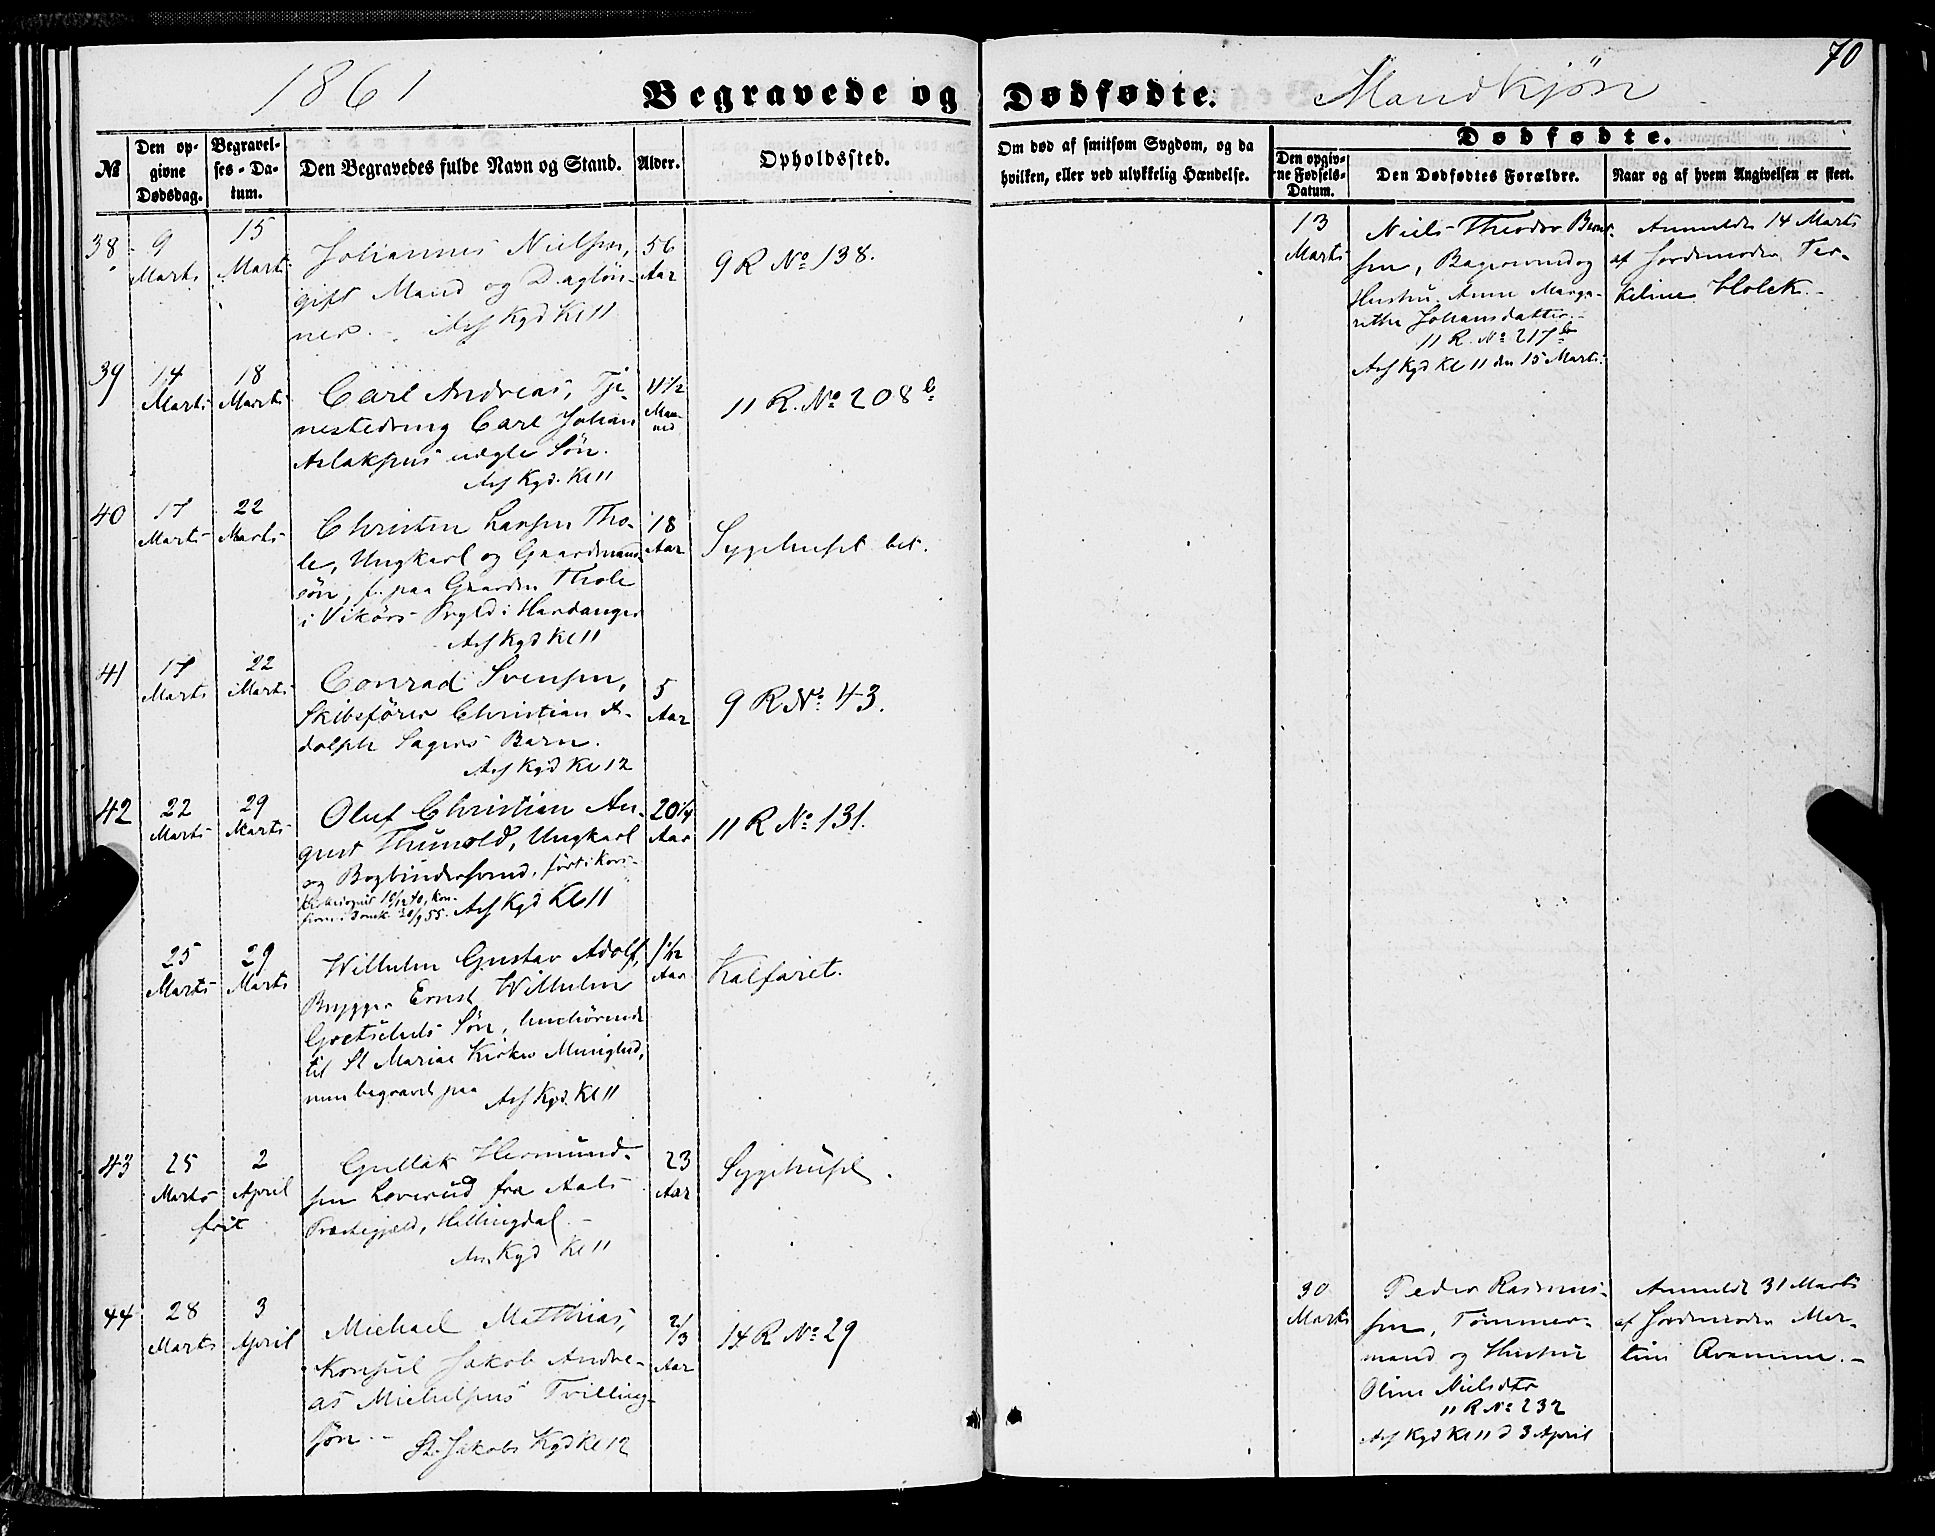 1861
Begravede og Dødfødte.
Mandkjøn
70
№
Den opgivne Dødsdag.
Begravelses-Datum.
Den Begravedes fulde Navn og Stand.
Alder.
Opholdssted.
Om død af smitsom Sygdom, og da hvilken, eller ved ulykkelig Hændelse.
Dødfødte.
Den opgivne Fødsels-Datum.
Den Dødfødtes Forældre.
Naar og af hvem Angivelsen er skeet.
38 9 Marts 15 Marts
Johannes Nielsen,
gift Mand og Dagløn-
ner. - Asf Kgd Kl 11
56 Aar
9 R № 138.
39 14 Marts 18 Marts
Carl Andreas, Tje-
nestedreng Carl Johan
Aslaksens uægte Søn.
Asf Kgd. Kl 11
Maaned
11 R. № 208 b
40 17 Marts 22 Marts
Christen Larsen Tho-
le, Ungkarl og Gaardmands-
søn, f. paa Gaarden Thole
i Vikørs Prgld i Hardanger
Asf Kgd Kl 11
18 Aar
Sygehuset bet.
41 17 Marts 22 Marts
Conrad Svensen,
Skibsfører Christian A-
dolph Sagens Barn.
Asf Kgd Kl 12
5 Aar
9 R № 43.
42 22 Marts 29 Marts
Oluf Christian Au-
gust Thunold, Ungkarl
og Bogbindersvend, født i Kors-
kirkesognet 10/12 40, kon-
firm. i Domk. 30/9 55. Asf Kgd Kl 11
20 1/4 Aar
11 R № 131.
25 Marts 29 Marts
Wilhelm Gustav Adolf,
Brygger Ernst Wilhelm
Gretschels Søn, henhørende
til St Mariæ Kirkes Menighed,
men begravet paa Asf Kgd. Kl 11
1 1/2 Aar
Kalfaret.
43 25 Marts 2 April
frit
Gullak Hermund-
sen Loverud fra Aals
Præstegjeld, Hallingdal. -
Asf Kgd Kl 11
23 Aar
Sygehuset.
44 28 Marts 3 April
Michael Matthias,
Konsul Jakob Andre-
as Michelsens Tvilling-
søn. - St. Jakobs Kgd Kl 12
2/3 Aar
14 R № 29
13 Marts
Niels Theodor Bernt-
sen, Bagersvend og
Hustru Anne Marga-
rethe Johansdatter. -
11 R. № 217 b
Asf Kgd Kl 11 den 15 Marts.
Anmeldt 14 Marts
af Jordemoder Ter-
keline Holck. -
30 Marts
Peder Rasmus-
sen, Tømmer-
mand og Hustru
Oline Nielsdtr
11 R № 232
Asf Kgd Kl 11 d 3 April
Anmeldt 31 Marts
af Jordemoder Mar-